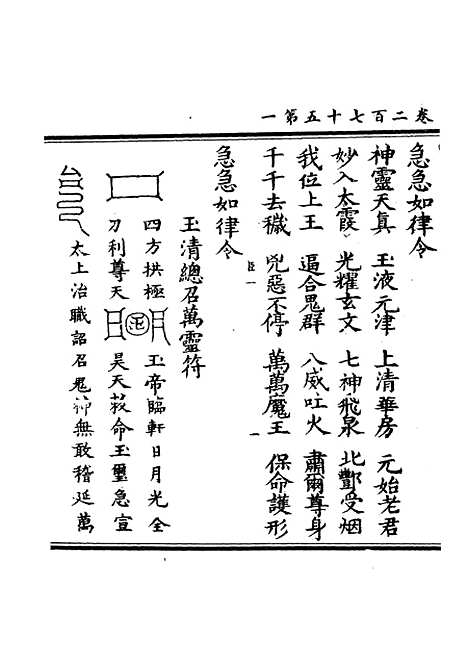 卷二百七十五第一
急急如律令
神靈天真　玉液元津　上清華房　元始老君
妙入太霞　光耀玄文　七神飛泉　北酆受烟
我位上王　逼合鬼群　八威吐火　肅爾尊身
千千去穢　兇惡不停　萬萬魔王　保命護形
急急如律令
玉清總召萬靈符
四方拱極　玉帝臨軒日月光全
刀利尊天　昊天敕命玉璽急宣
太上治職詔召鬼神無敢稽延萬